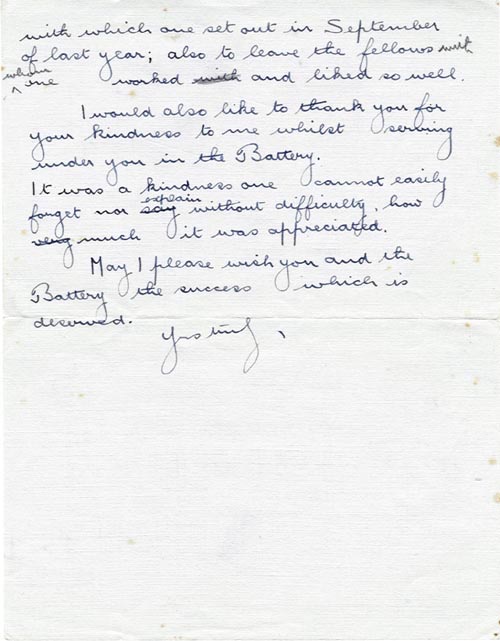 with which one set out in September
of last year; also to leave the fellows with
whom one worked with and liked so well.
I would also like to thank you for
your kindness to me whilst serving
under you in the Battery.
It was a kindness one cannot easily
forget nor say explain without difficulty, how
very much it was appreciated.
May I please wish you and the
Battery the success which is
deserved.
Yrs truly,